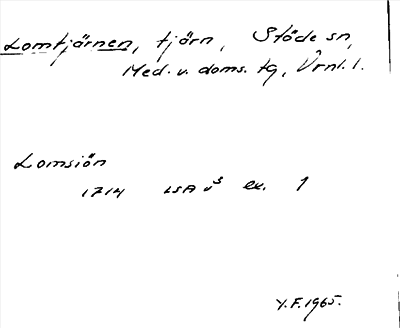 Lomtjärnen, tjärn, Stöde sn,
Med. v. doms. tg, Vrnl. l.
Lomsiön
1714 LSA v5 ex. 1
Y.F. 1965.